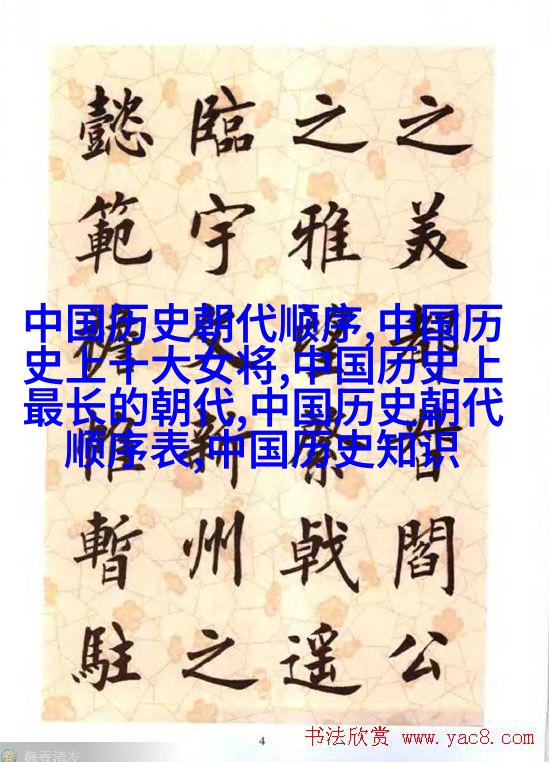 之美都督閻公
之雅望棨戟遥
臨宇文新州之
懿範襜帷暫駐
中国历史朝代顺序,中国历
史上十大女将,中国历史上
最长的朝代,中国历史朝代
顺序表,中国历史知识
4
书法欣赏 www.yac8.com